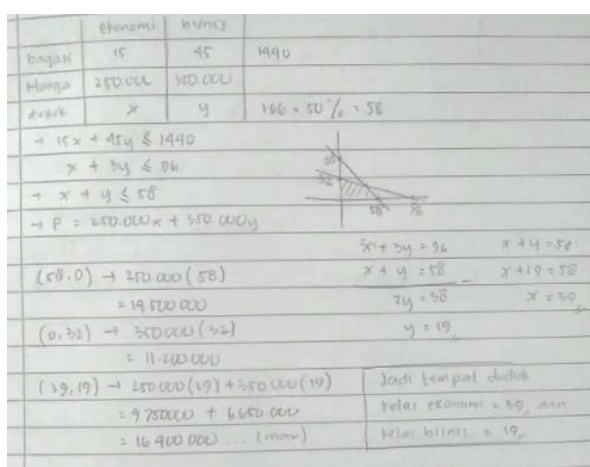 ekonomi bisnis
bagasi 15 45 1440
Harga 250.000 350.000
duduk x y 116 × 50% = 58
→ 15x + 45y ≤ 1440
x + 3y ≤ 96
→ x + y ≤ 58
→ P = 250.000x + 350.000y
58
32
58 96
x + 3y = 96
x + y = 58 −
2y = 38
y = 19
x + y = 58
x + 19 = 58
x = 39
(58,0) → 250.000 (58)
= 14.500 000
(0,32) → 350000 (32)
= 11.200 000
(39,19) → 250 000 (39) + 350 000 (19)
= 9 750000 + 6 650 000
= 16 400 000 ... (max)
Jadi tempat duduk
kelas ekonomi = 39, dan
kelas bisnis = 19